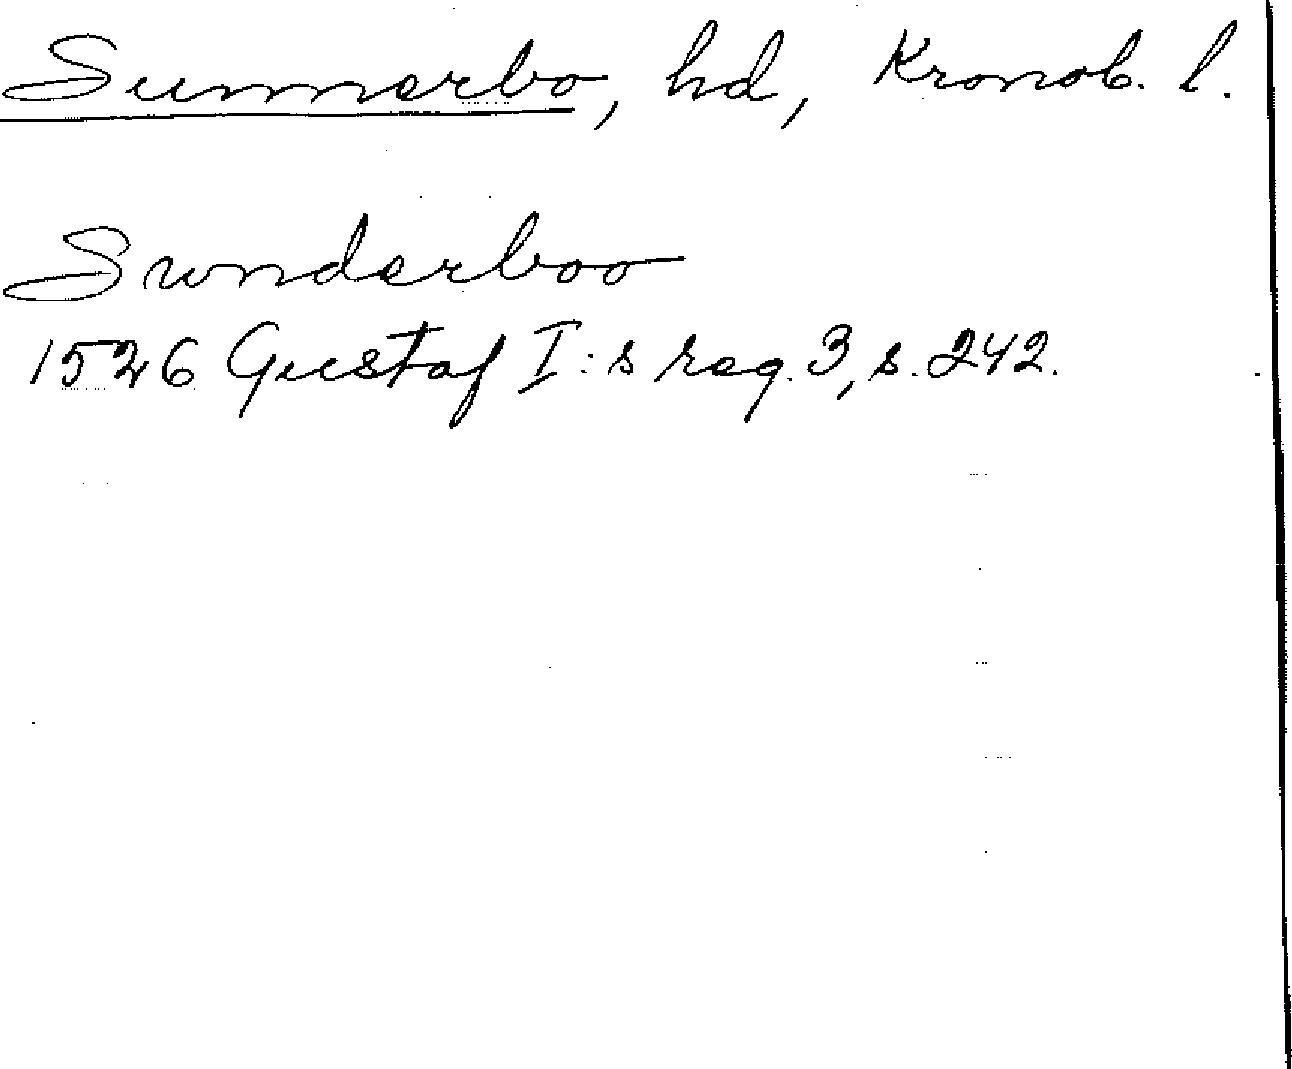 Sunnerbo, hd, Kronob. l.
Swnderboo
1526 Gustaf I:s reg. 3, s. 242.